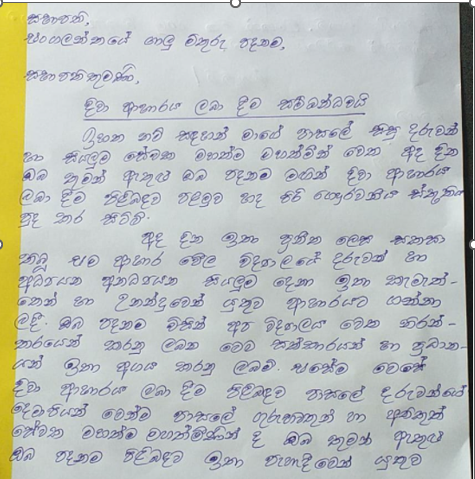 සභාපති,
එංගලන්තයේ ගාලු මිතුරු පදනම,
සභාපතිතුමණි,
දිවා ආහාරය ලබා දීම සම්බන්ධවයි
ඉහත නම් සඳහන් මාගේ පාසලේ සිසු දරුවන්
හා සියලුම සේවක මහත්ම මහත්මීන් වෙත අද දින
ඔබ තුමන් ඇතුළු ඔබ පදනම මඟින් දිවා ආහාරය
ලබා දීම පිළිබඳව පළමුව හද පිරි ගෞරවනීය ස්තුතිය
පුද කර සිටිමි.
අද දින ඉතා ප්‍රනීත ලෙස සකසා
තිබූ එම ආහාර වේල විද්‍යාලයේ දරුවන් හා
අධ්‍යයන අනධ්‍යයන සියලුම දෙනා ඉතා කැමැත්-
තෙන් හා උනන්දුවෙන් යුතුව ආහාරයට ගන්නා
ලදී. ඔබ පදනම විසින් අප විද්‍යාලය වෙත නිරන්-
තරයෙන් කරනු ලබන මෙම සත්කාරයන් හා ප්‍රධාන-
යන් ඉතා අගය කරනු ලබමි. එසේම මෙසේ
දිවා ආහාරය ලබා දීම පිළිබඳව පාසලේ දරුවන්ගේ
දෙමාපියන් මෙන්ම පාසලේ ගුරුභවතුන් හා අනිකුත්
සේවක මහත්ම මහත්මීන්ගේ ද ඔබ තුමන් ඇතුළු
ඔබ පදනම පිළිබඳව ඉතා පැහැදීමෙන් යුතුව